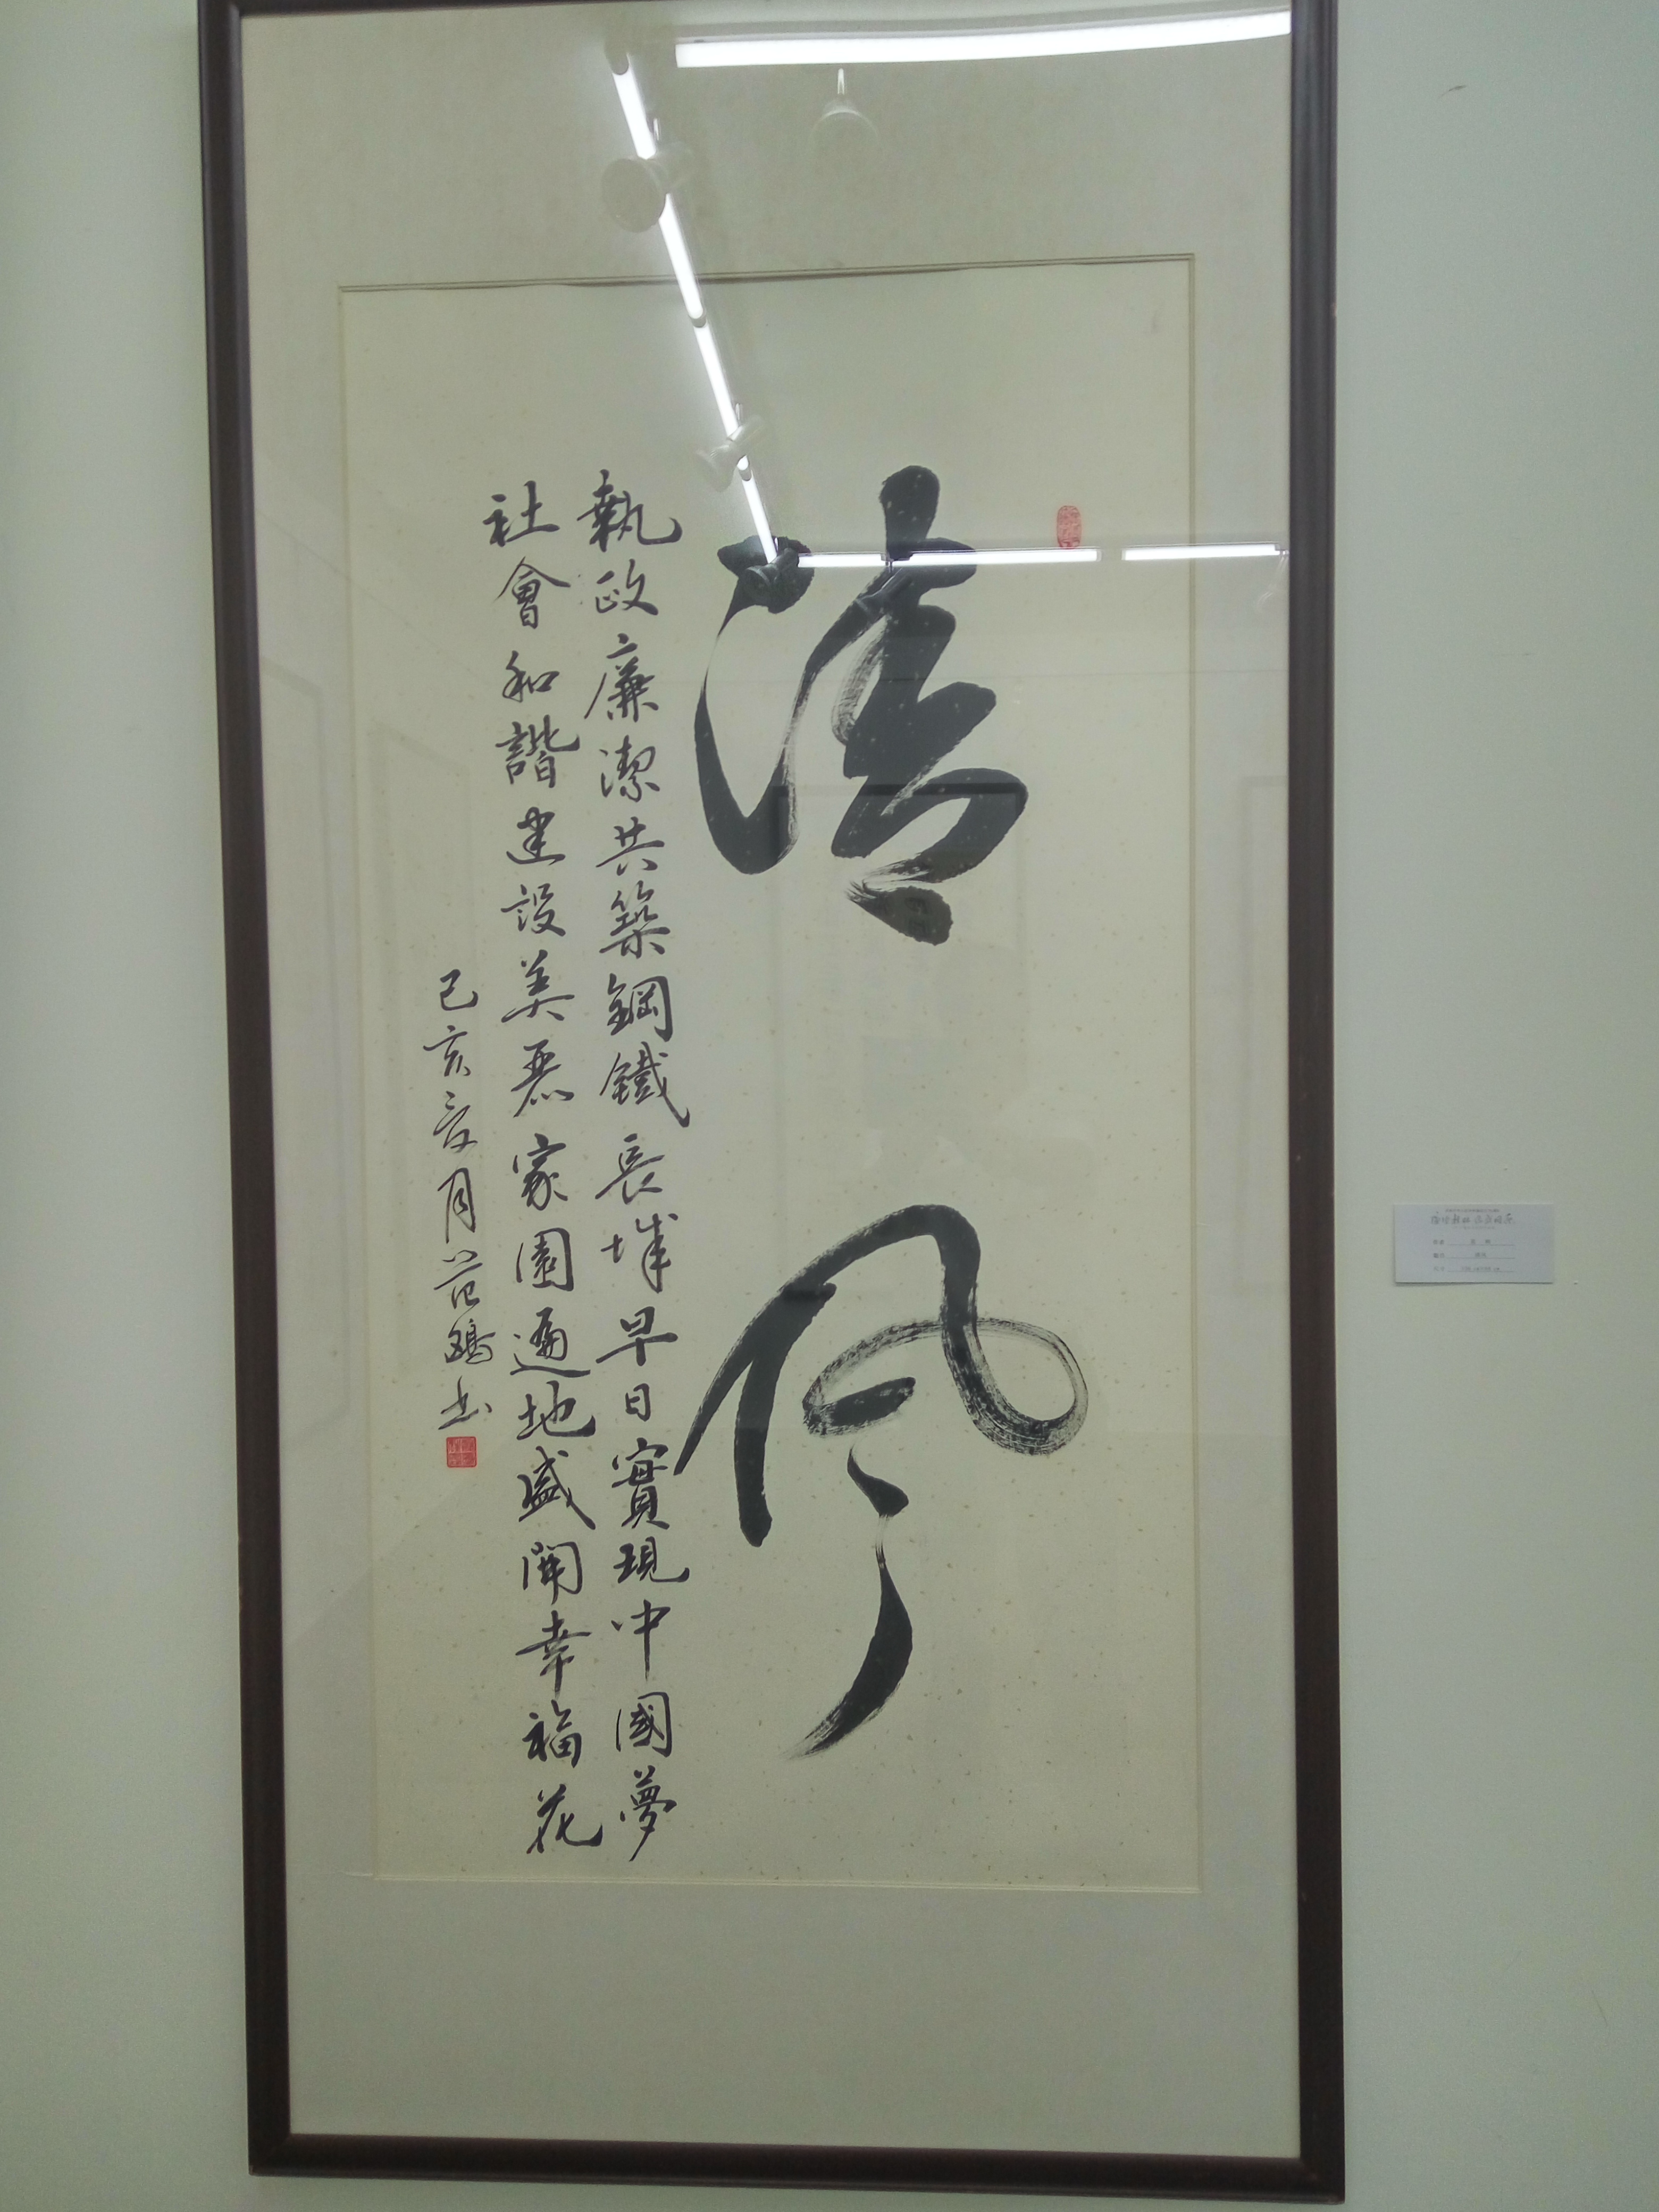 清风
執政廉潔共築鋼鐵長城早日實現中國夢
社會和諧建設美麗家園遍地盛開幸福花
己亥夏月范鵬書